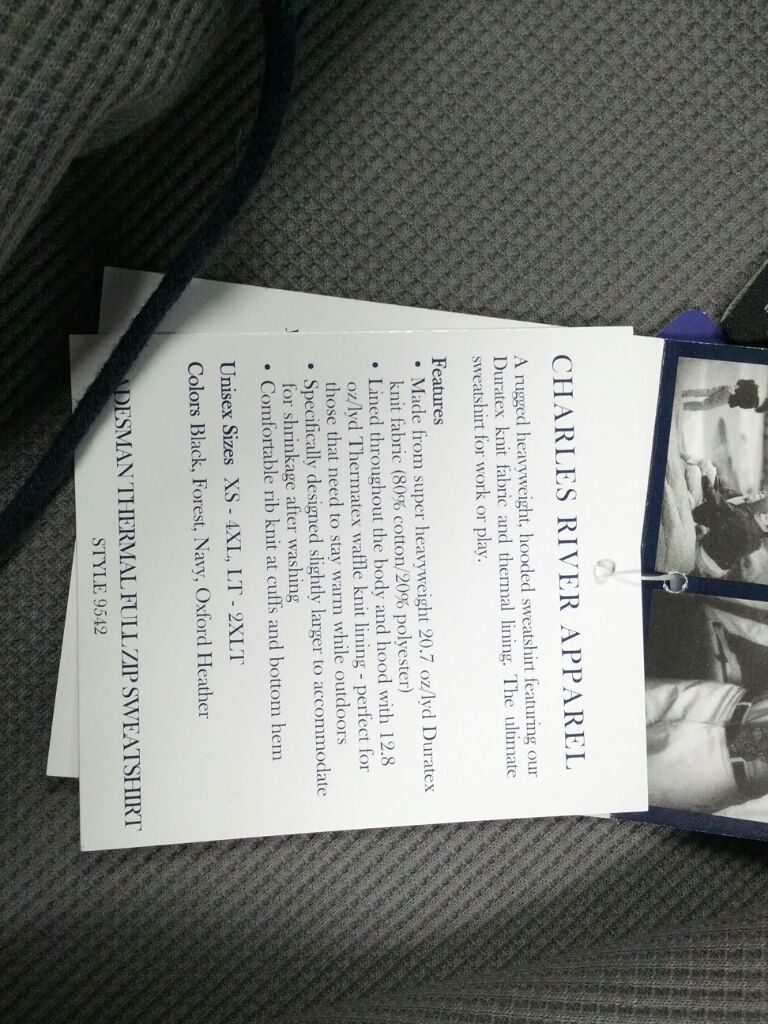 CHARLES RIVER APPAREL
A rugged heavyweight, hooded sweatshirt featuring our
Duratex knit fabric and thermal lining. The ultimate
sweatshirt for work or play.
Features
• Made from super heavyweight 20.7 oz/lyd Duratex
knit fabric (80% cotton/20% polyester)
• Lined throughout the body and hood with 12.8
oz/lyd Thermatex waffle knit lining - perfect for
those that need to stay warm while outdoors
• Specifically designed slightly larger to accommodate
for shrinkage after washing
• Comfortable rib knit at cuffs and bottom hem
Unisex Sizes XS - 4XL, LT - 2XLT
Colors Black, Forest, Navy, Oxford Heather
THERMAL FULL ZIP SWEATSHIRT
STYLE 9542